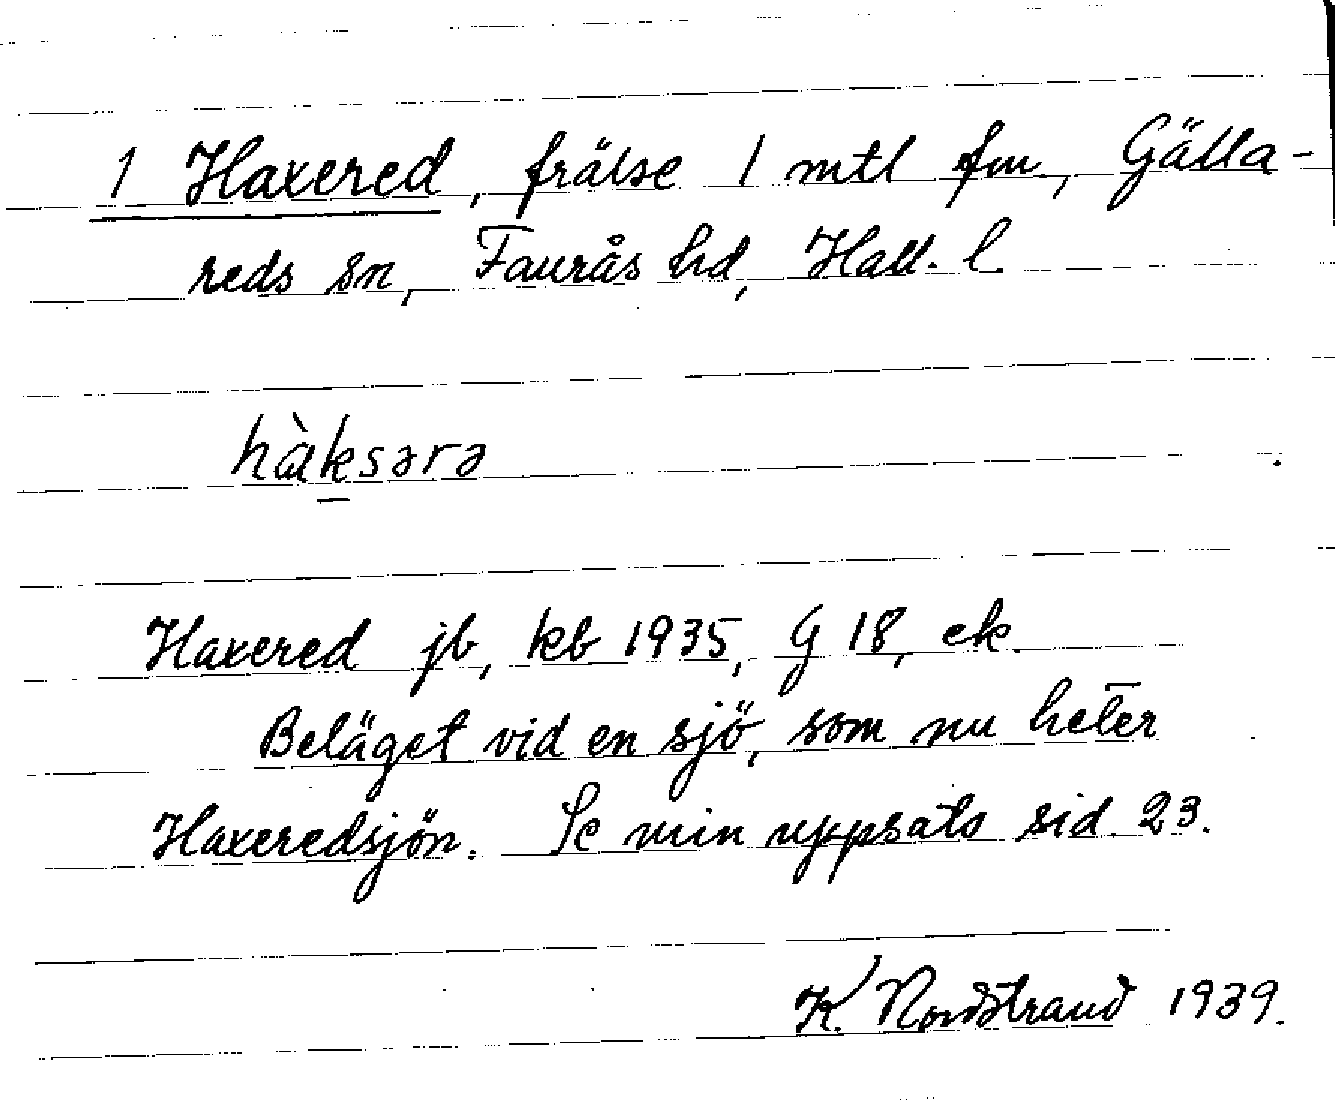 1 Haxered, frälse 1 mtl fm, Gälla-
reds sn, Faurås hd, Hall. l.
hàksərə
Haxered jb, kb 1935, G 18, ek.
Beläget vid en sjö, som nu heter
Haxeredsjön. Se min uppsats sid. 23.
K. Nordstrand 1939.